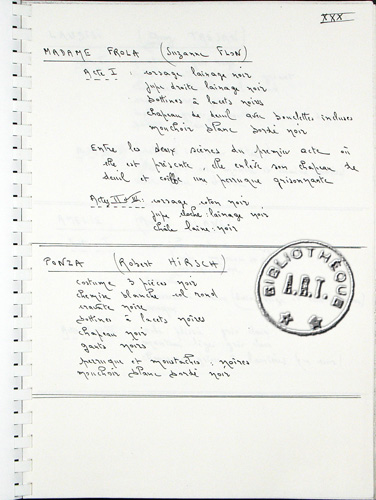 XXX
MADAME FROLA (Suzanne FLON)
Acte I : corsage lainage noir
jupe droite lainage noir
bottines à lacets noires
chapeau de deuil avec bouclettes incluses
mouchoir blanc bordé noir
Entre les deux scènes du premier acte où
elle est présente, elle enlève son chapeau de
deuil et coiffe une perruque grisonnante
Actes II et III : corsage coton noir
jupe cloche : lainage noir
châle laine : noir
PONZA (Robert HIRSCH)
costume 3 pièces noir
chemise blanche col rond
cravate noire
bottines à lacets noires
chapeau noir
gants noirs
perruque et moustaches : noires
mouchoir blanc bordé noir
BIBLIOTHÈQUE
A.R.T.